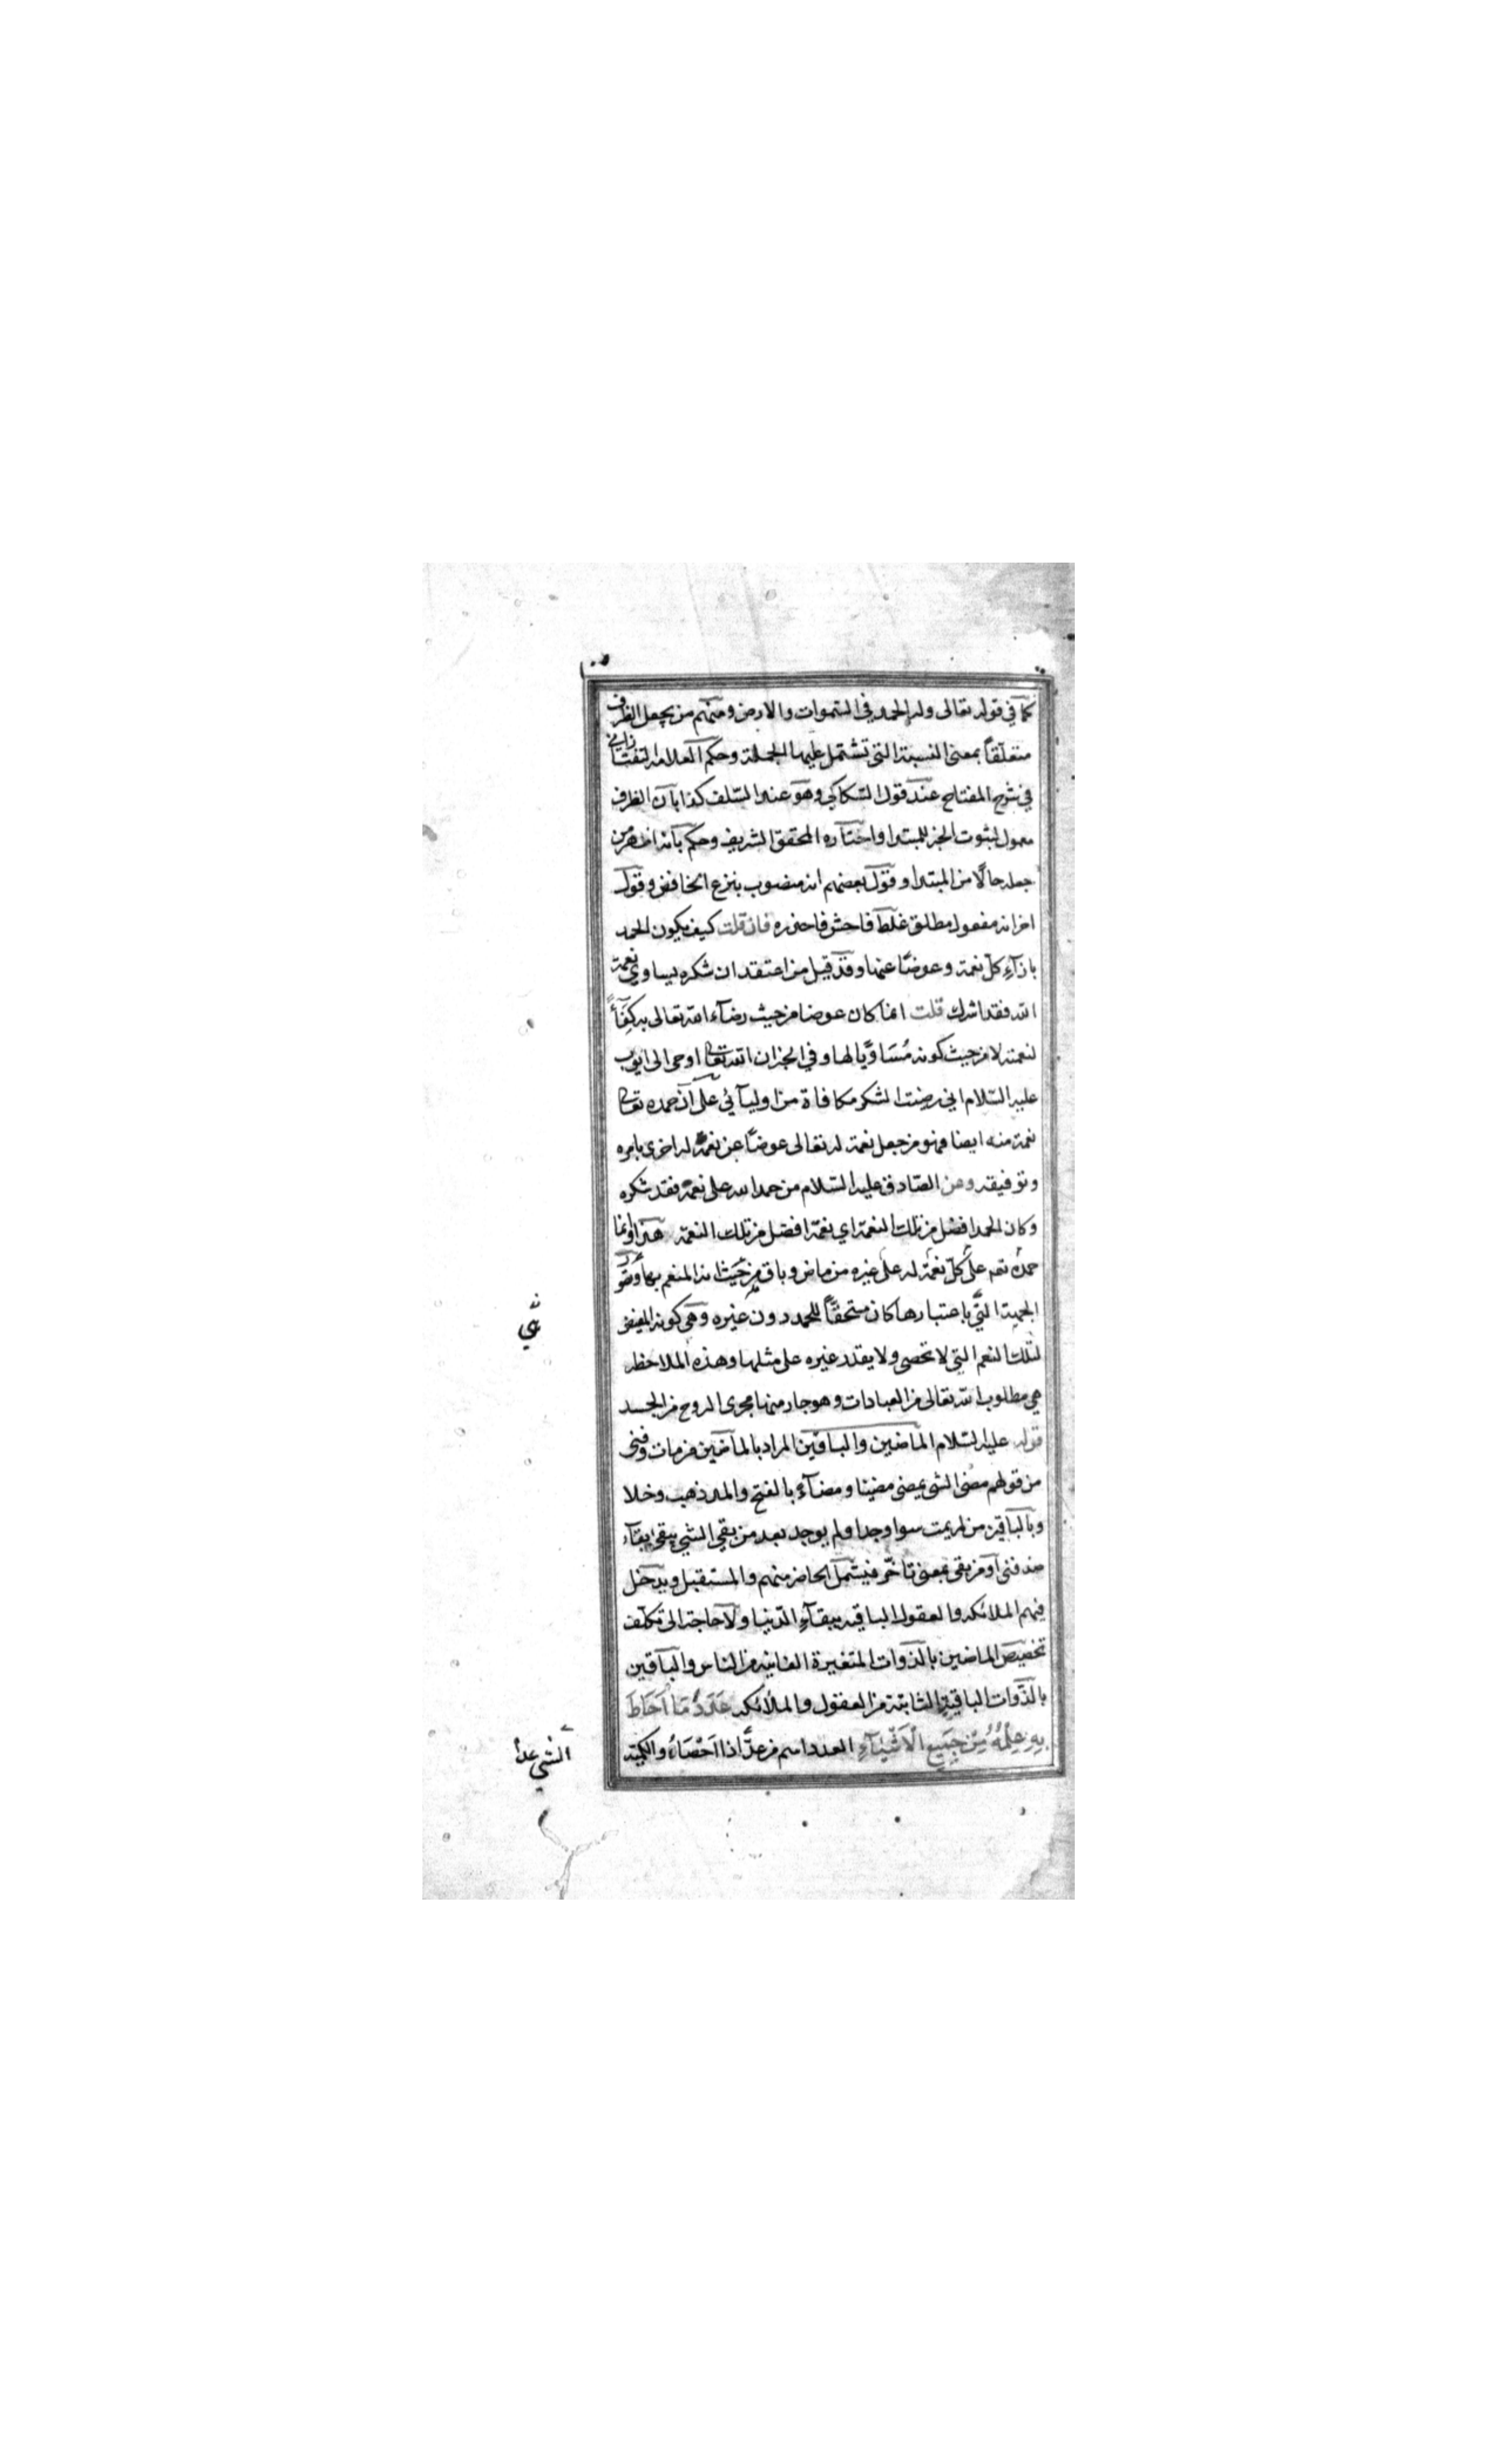 كما في قوله تعالى وله الحمد في السموات والارض ومنهم من يجعل الظرف
متعلقاً بمعنى النسبة التى تشتمل عليها الجملة وحكم العلامة التفتازاني
في شرح المفتاح عند قول السكاكي وهو عند السلف كذا بان الظرف
معمول لثبوت الخبر للمبتدا واختاره المحقق الشريف وحكم بانه اظهر من
جعله حالًا من المبتدا وقول بعضهم انه منصوب بنزع الخافض وقول
اخر انه مفعول مطلق غلط فاحش فاحذره فان قلت كيف يكون الحمد
بازآء كل نعمة وعوضًا عنها وقد قيل من اعتقد ان شكره يساوي نعمة
الله فقد اشرك قلت انما كان عوضا من حيث رضآء الله تعالى به كفآءً
لنعمته لا من حيث كونه مُسَاويًا لها وفي الخبر ان الله تعالى اوحى الى ايوب
عليه السلام اني رضيت الشكر مكافاة من اوليآئي على ان حمده تعالى
نعمة منه ايضا فهو من جعل نعمة له تعالى عوضًا عن نعمة له اخرى بامره
وتوفيقه وعن الصادق عليه السلام من حمد الله على نعمة فقد شكره
وكان الحمد افضل من تلك النعمة اي نعمة افضل من تلك النعمة هذا وانما
حمده تعـ على كل نعمة له على غيره من ماض وباق من حيث انه المنعم بها وتصور
الجهة التي باعتبارها كان مستحقًّا للحمد دون غيره وهى كونه المفيض
لتلك النعم التي لا تحصى ولا يقدر غيره على مثلها وهذه الملاحظة
هي مطلوب الله تعالى من العبادات وهو جار منها مجرى الروح من الجسد
قوله عليه السلام الماضين والباقين المراد بالماضين من مات وفنى
من قولهم مضى الشى يمضى مضيا ومضآء بالفتح والمد ذهب وخلا
وبالباقين من لم يمت سوا وجد اولم يوجد بعد من بقي الشي يبقى بقآء
ضد فنى او من بقى بمعنى تاخّر فيشمل الحاضر منهم والمستقبل ويدخل
فيهم الملائكة والعقول الباقية ببقآء الدنيا ولا حاجة الى تكلف
تخصيص الماضين بالذوات المتغيرة الفانية من الناس والباقين
بالذوات الباقية الثابتة من العقول والملائكة عَدَدَ مَا اَحَاطَ
بِهِ عِلْمُهُ مِنْ جَمِيعِ الْاَشْيَآءِ العدد اسم من عدّ اذا اَحْصَاهُ والكمية
الشي عدا